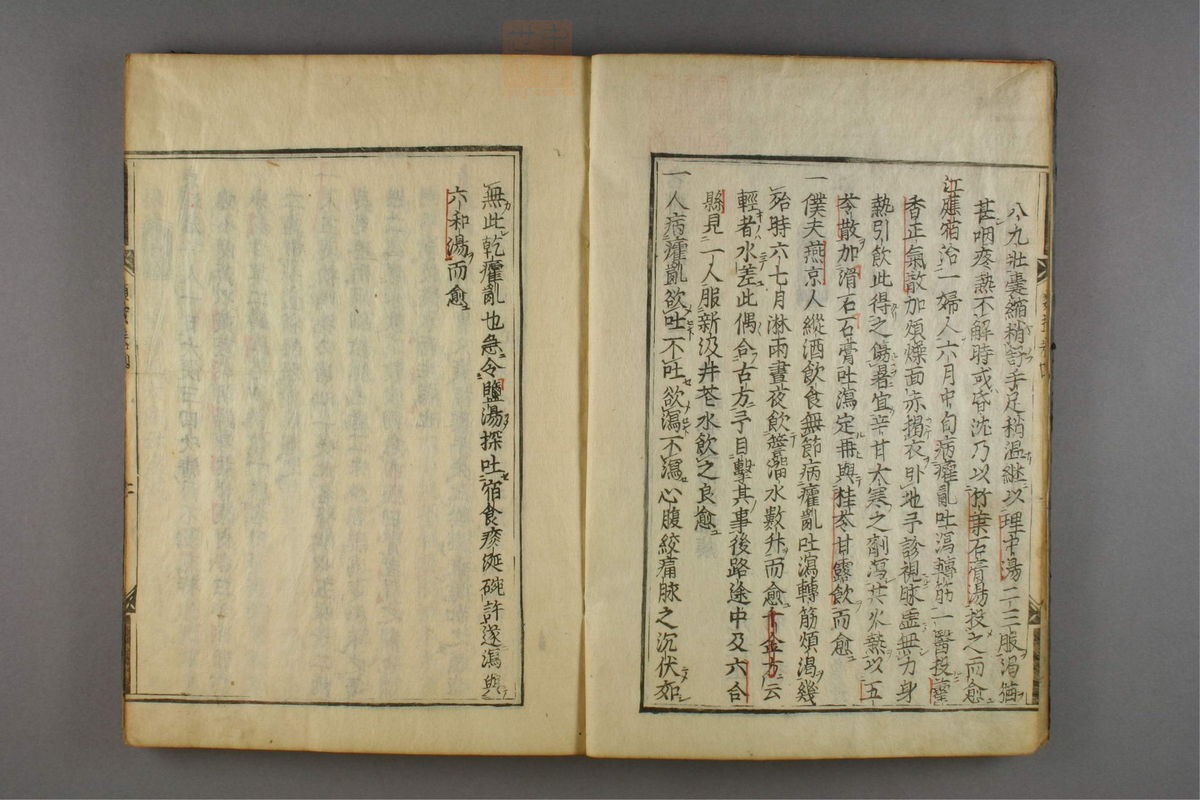 八九壯囊縮稍舒手足稍温継以理中湯二三服渴猶
甚咽疼熱不解時或昏沈乃以竹葉石膏湯投之而愈
江應宿治一婦人六月中旬病癨亂吐瀉轉筋一醫投藿
香正氣散加煩燥面赤揭衣卧地予診視脉虛無力身
熱引飲此得之傷暑宜辛甘大寒之劑瀉其火熱以五
苓散加滑石石膏吐瀉定再與桂苓甘露飲而愈
一僕夫燕京人縱酒飲食無節病癨亂吐瀉轉筋煩渴幾
殆時六七月淋雨晝夜飲簷溜水數升而愈千金方云
輕者水差此偶合古方予目擊其事後路途中及六合
縣見一人服新汲井花水飲之良愈
一人病癨亂欲吐不吐欲瀉不瀉心腹絞痛脉之沉伏如
無此乾癨亂也急令鹽湯探吐宿食痰涎碗許遂瀉與
六和湯而愈